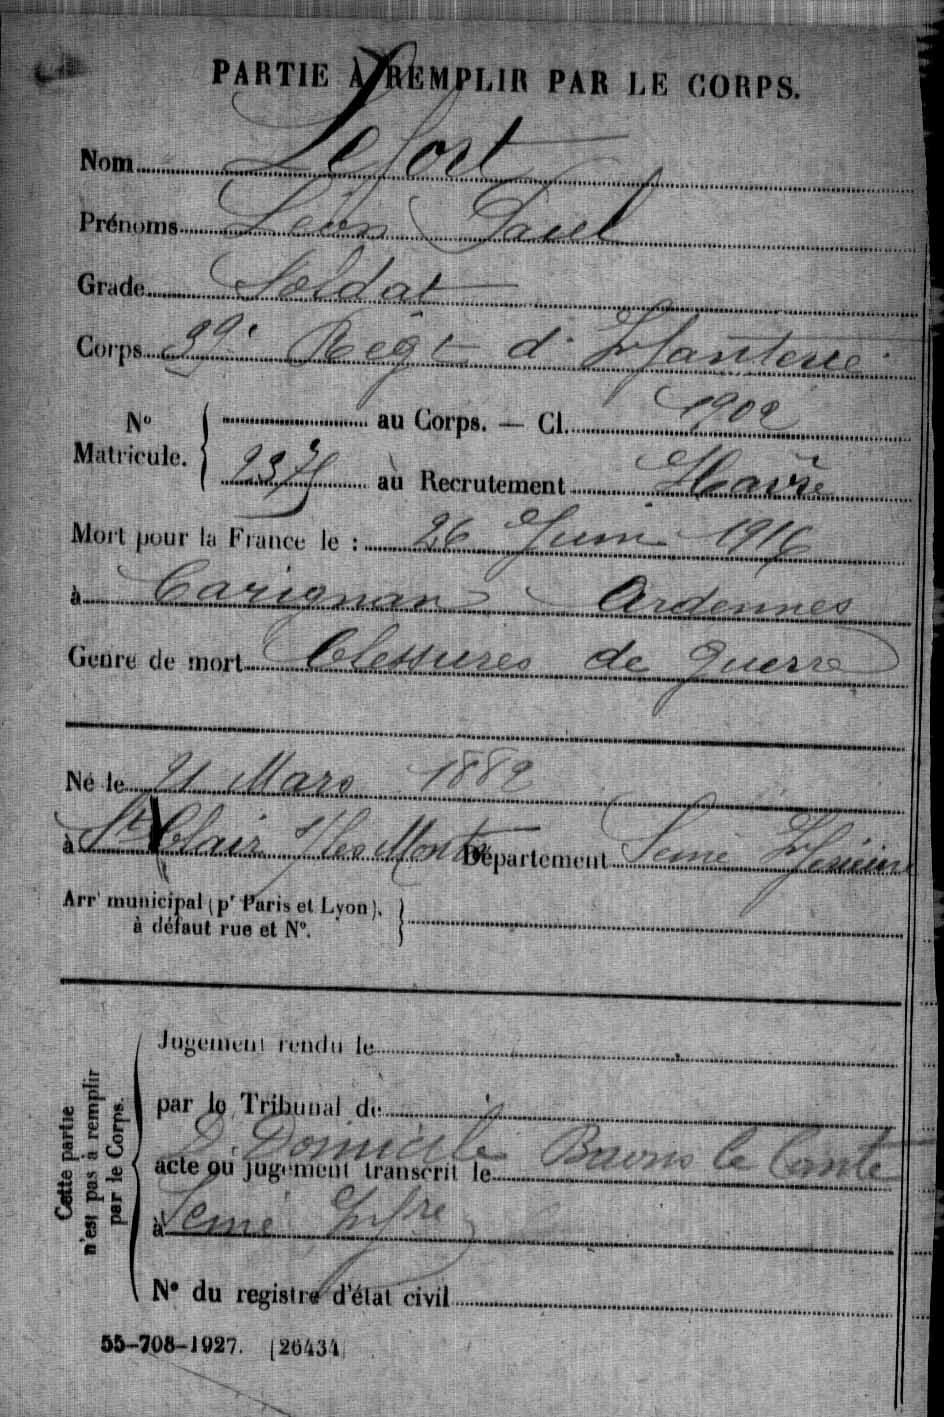 PARTIE À REMPLIR PAR LE CORPS.
Nom Lefort
Prénoms Léon Paul
Grade Soldat
Corps 39e Regt d'Infanterie
No Matricule. { au Corps. — Cl. 1902
237 au Recrutement Havre
Mort pour la France le : 26 Juin 1916
à Carignan Ardennes
Genre de mort blessures de guerre
Né le 21 Mars 1882
à St Clair s/ les Monts Département Seine Inférieure
Arrt municipal (pr Paris et Lyon),
à défaut rue et No.
Cette partie
n'est pas à remplir
par le Corps.
Jugement rendu le
par le Tribunal de
D. Domicile Baons le Comte
acte ou jugement transcrit le
à Seine Infre
No du registre d'état civil
55-708-1927. [26434]